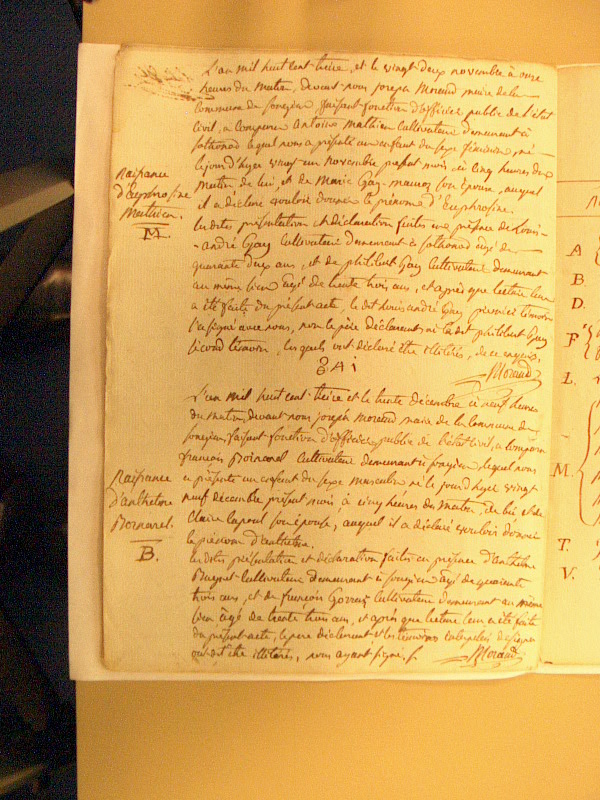 L'an mil huit cent treize, et le vingt deux novembre à onze
heures du matin, devant nous joseph Moraud, maire de la
commune de songieu faisant fonction d'officier public de l'état
civil, a comparu Antoine Mathieu Cultivateur demeurant à
sothonod lequel nous a présenté un enfant du sexe féminin, né
le jour d'hyer vingt un novembre présent mois, à cinq heures du
matin de lui, et de Marie Gay son épouse, auquel
il a déclaré vouloir donner le prénom d'Euphrosine.
lesdites présentation et déclaration faites en présence de Louis
andré Gay Cultivateur demeurant à sothonod âgé de
quarante deux ans, et de philibert Gay Cultivateur demeurant
au même lieu âgé de trente trois ans, et après que lecture leur
a été faite du présent acte, le dit Louis andré Gay premier témoin
l'a signé avec nous, non le père déclarant ni le dit philibert Gay
second témoin, lesquels ont déclaré être illitérés, de ce enquis.
GAi
Moraud
Naissance
d'Euphrosine
Mathieu.
M.
L'an mil huit cent treize et le trente décembre à neuf heures
du matin, devant nous joseph moraud maire de la Commune de
songieu faisant fonction d'officier public de l'état civil, a comparu
françois Bornarel Cultivateur demeurant à songieu, lequel nous
a présenté un enfant du sexe masculin né le jour d'hyer vingt
neuf décembre présent mois à cinq heures du matin, de lui et de
Claire son épouse, auquel il a déclaré vouloir donner
le prénom d'anthelme.
lesdites présentation et déclaration faites en présence d'anthelme
Cultivateur demeurant à songieu âgé de quarante
trois ans, et de françois Cultivateur demeurant au même
lieu âgé de trente trois ans, et après que lecture leur a été faite
du présent acte, le père déclarant et les témoins de signer
ont dit être illitérés, nous ayant signé.
Moraud
Naissance
d'anthelme
Bornarel.
B.
A
B.
D.
F
L.
M.
T.
V.